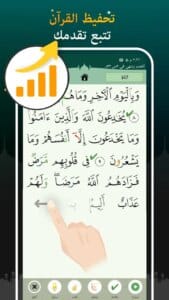 تحفيظ القرآن
تتبع تقدمك
وَبِالْيَوْمِ الْآخِرِ وَمَا هُم
يُخَٰدِعُونَ اللَّهَ وَالَّذِينَ ءَامَنُوا
وَمَا يَخْدَعُونَ إِلَّا أَنفُسَهُمْ وَمَا
يَشْعُرُونَ ٩ فِي قُلُوبِهِم مَّرَضٌ
فَزَادَهُمُ اللَّهُ مَرَضًا وَلَهُمْ
عَذَابٌ أَلِيمٌ